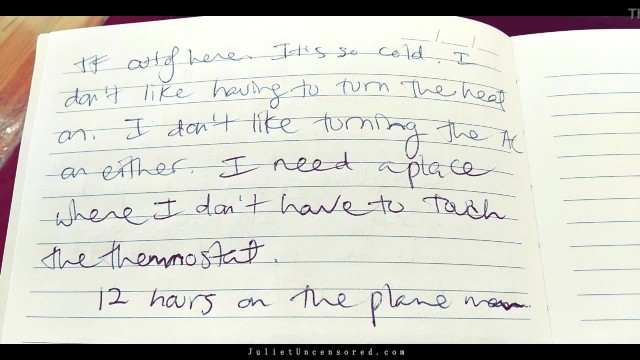 out of here. It's so cold. I
don't like having to turn the heat
on. I don't like turning the AC
on either. I need a place
where I don't have to touch
the thermostat.
12 hours on the plane
JulietUncensored.com